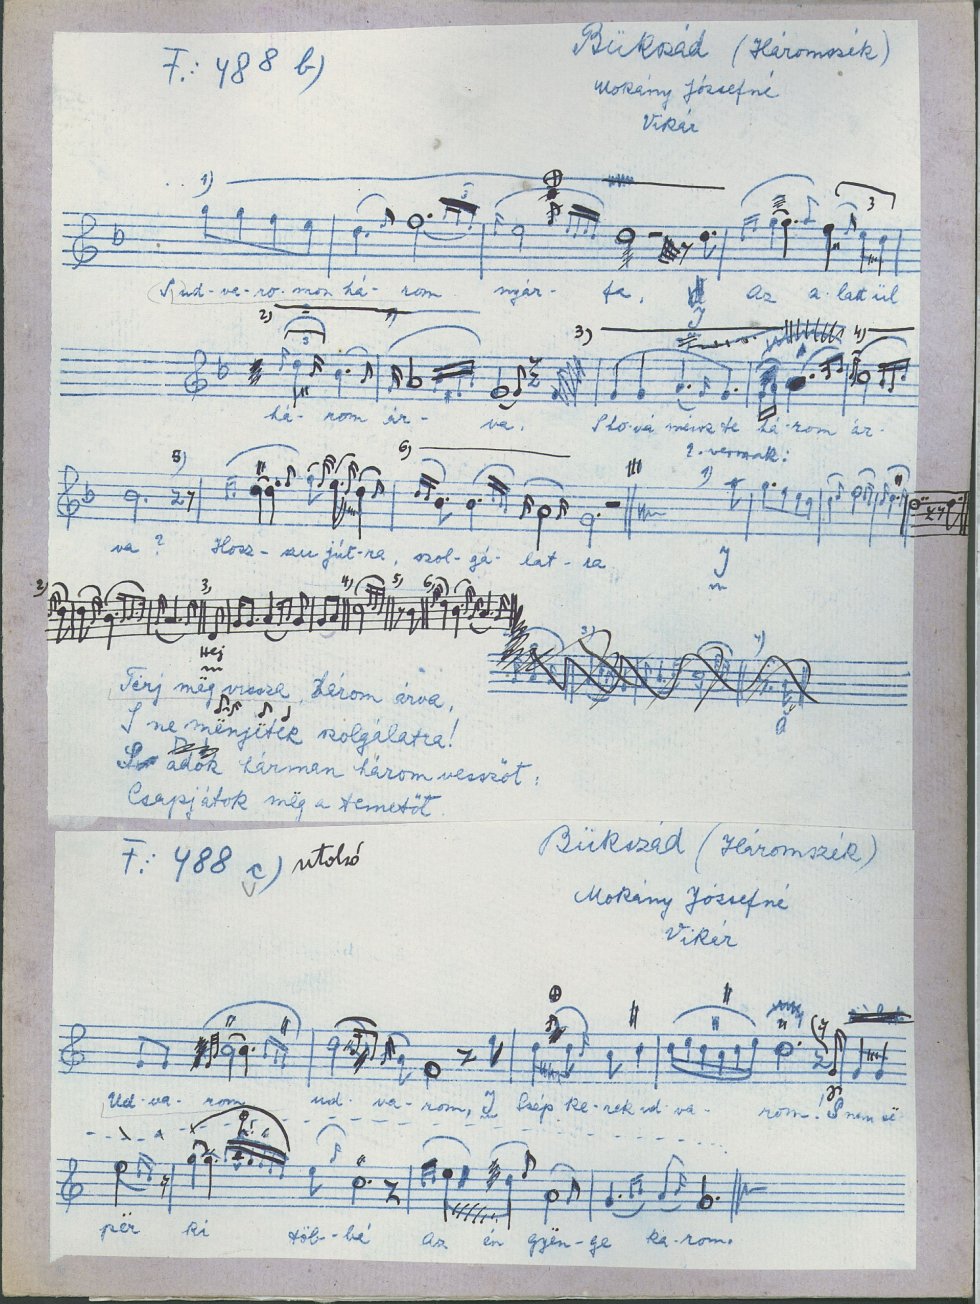 F.: 488 b)
Bükszád (Háromszék)
Mokány Józsefné
Vikár
1)
3
3
Ud-va-ro-mon há-rom nyár-fa, Az a-latt ül
2) 3) 4)
3
há-rom ár-va. Ho-vá mész te há-rom ár-
2. versszak:
5) 6) 1)
va? Hosz-szu jút-ra, szol-gá-lat-ra
2) 3) 4) 5) 6)
Hej
3) 4)
Térj még vissza, három árva,
S ne mënjëtëk szolgálatra!
adok hárman három vesszőt:
Csapjátok mëg a temetőt.
F.: 488 c) utolsó
Bükszád (Háromszék)
Mokány Józsefné
Vikár
Ud-va-rom ud-va-rom, Szép ke-rek ud-va-rom! S nem së
për ki töb-bé az én gyën-ge ka-rom.